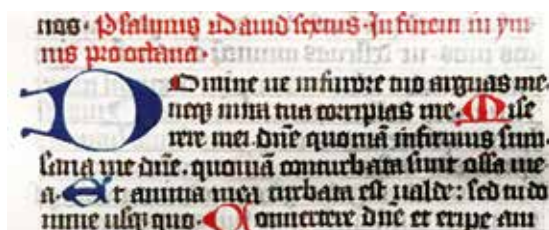 nos. Psalmus David sextus In finem in ym
nis pro octava.
Domine ne in furore tuo arguas me.
neq; in ira tua corripias me. Mise
rere mei dn̄e quoniā infirmus sum.
sana me dn̄e. quoniā conturbata sunt ossa me
a. Et anima mea turbata est valde: sed tu do
mine usq; quo. Convertere dn̄e et eripe ani